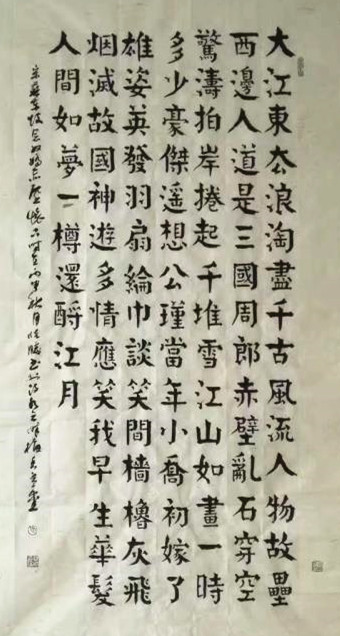 大江東去浪淘盡千古風流人物故壘
西邊人道是三國周郎赤壁亂石穿空
驚濤拍岸捲起千堆雪江山如畫一時
多少豪傑遙想公瑾當年小喬初嫁了
雄姿英發羽扇綸巾談笑間檣櫓灰飛
烟滅故國神遊多情應笑我早生華髮
人間如夢一樽還酹江月
宋蘇東坡念奴嬌赤壁懷古